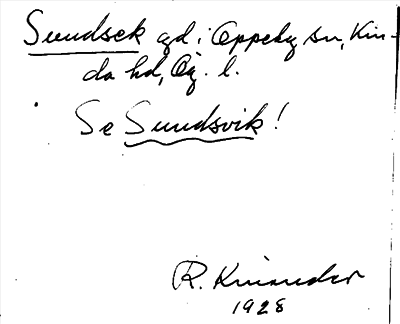 Sundsek gd, i Oppeby sn, Kin-
da hd, Ög. l.
Se Sundsvik!
R. Kninder
1928